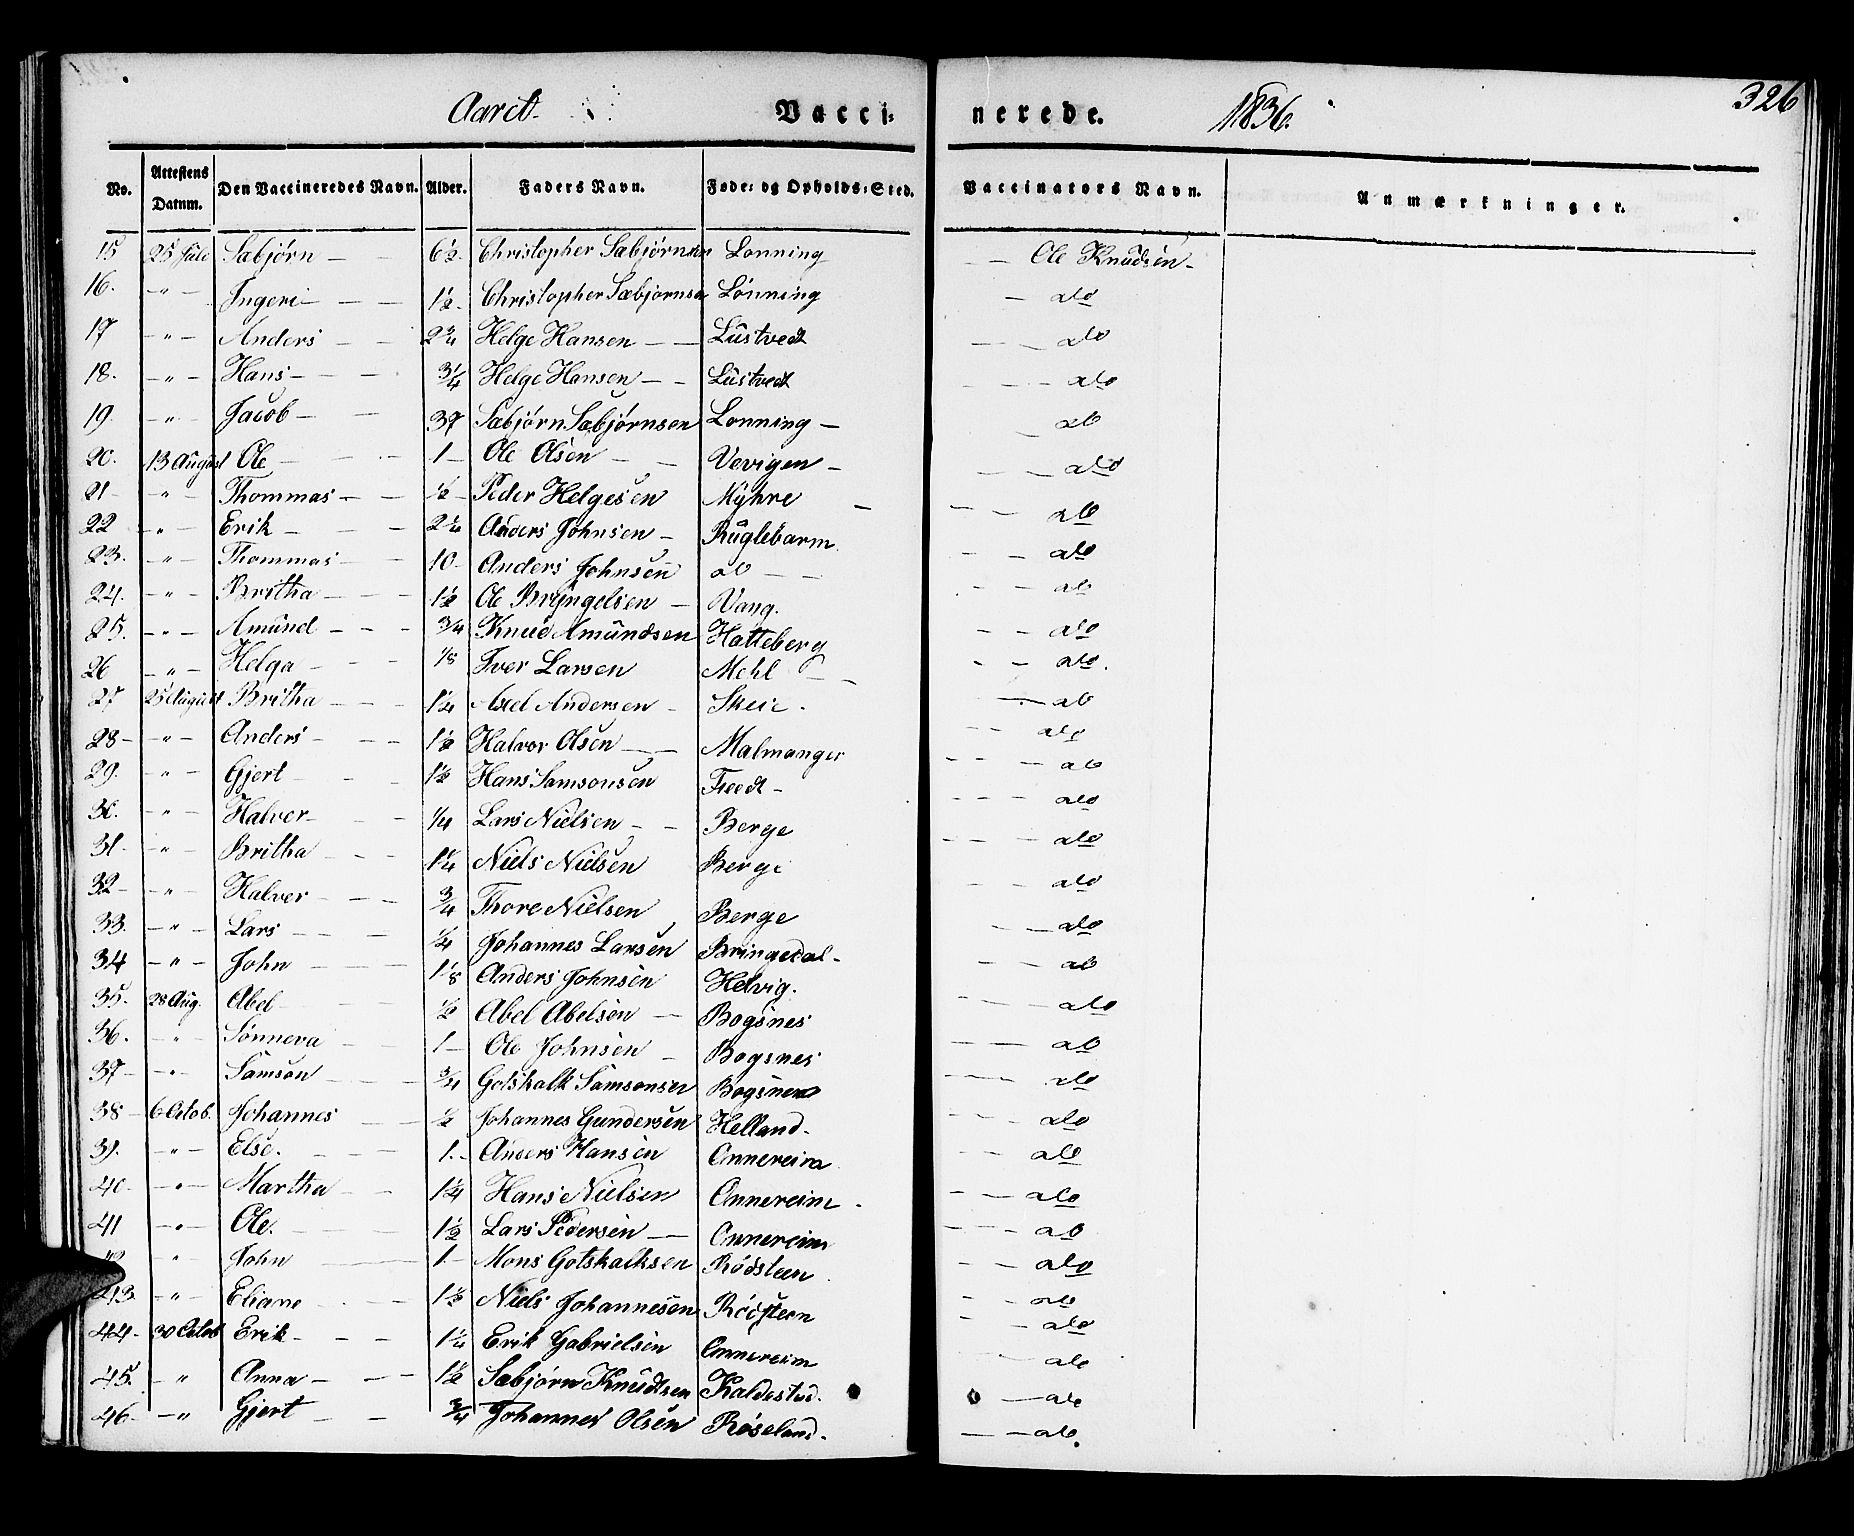 326
Aaret Vaccinerede. 1836.
No. Attestens Datum. Den Vaccineredes Navn. Alder. Faders Navn. Føde- og Opholds-Sted. Vaccinators Navn. Anmærkninger.
15 25 Sæbjørn — — 6½ Christopher Sæbjørnsen Lonning — — Ole Knudsen —
16. — " — Ingeri — — — 1½ Christopher Sæbjørnsen Lønning — ado
17 — " — Anders — — 2¾ Helge Hansen — — Lustvedt — — ado
18. — " — Hans — — — 3/4 Helge Hansen — — Lustvedt — — — ado
19. — " — Jacob — — 37 Sæbjørn Sæbjørnsen Lonning — — ado
20. 13 August Ole — — — 1 — Ole Olsen — — Vevigen — — — ado
21 — " — Thommas — — ½ — Peder Helgesen Myhre — — — ado
22 — " — Erik — — — 2¼ Anders Johnsen — Ruglebarm — — ado
23. — " — Thommas — — 10 — Anders Johnsen ado — — — ado
24. — " — Britha — — — 1½ Ole Bryngelsen — Vang. — — ado
25. — " — Amund — — — 3/4 Knud Amundsen Hatteberg — — ado
26 — " — Helga — — — 1/8 Iver Larsen Mehl — — — — ado.
27 25 August Britha — — 1¼ Axel Andersen — Skeie. — ado
28 — — " — Anders — — — 1½ Halvor Olsen — — Malmanger — — ado
29. — " — Gjert — — — 1½ Hans Samsonsen — — — ado
30. — " — Halver — — — 1/4 Lars Nielsen — — Berge — — — ado
31 — — " — Britha — — — 1¼ Niels Nielsen Berge — — — ado
32 — — " — Halver — — — 3/4 Thore Nielsen Berge — — ado
33. — " — Lars — — — 1/4 Johannes Larsen Bringedal — — — ado
34 — " — John — — — 1⅛ Anders Johnsen Helvig. — — ado
35. 28 Aug. Abel — — — ½ Abel Abelsen — Bogsnes — — — ado
36. — " — Sønneva — — 1 — Ole Johnsen — Bogsnes — — — ado
37 — — " — Samson — — — 3/4 Gotskalk Samsonsen Bogsnes — — — ado
38 — 6 Octob. Johannes — — ½ Johannes Gundersen Helland. — — — ado
39. — " — Else. — — — 1. — Anders Hansen Onnereim — — ado
40 — — " — Martha — — 1¼ Hans Nielsen Onnereim. — — ado
41 — " — Ole. — — — 1½ Lars Pedersen — Onnereim — — — ado
42 — " — John — — 1. — Mons Gotskalksen Rødsteen — — — ado
43 — " — Eliane — — — 1½ Niels Johannesen Rødsteen — — ado
44 — 30 Octob Erik — — — 1¼ Erik Gabrielsen Onnereim — — ado
45. — " Anna — — — 1½ Sæbjørn Knudtsen Kaldestad. — ado
46. — " Gjert — — 3/4 Johannes Olsen Røseland. — — ado.